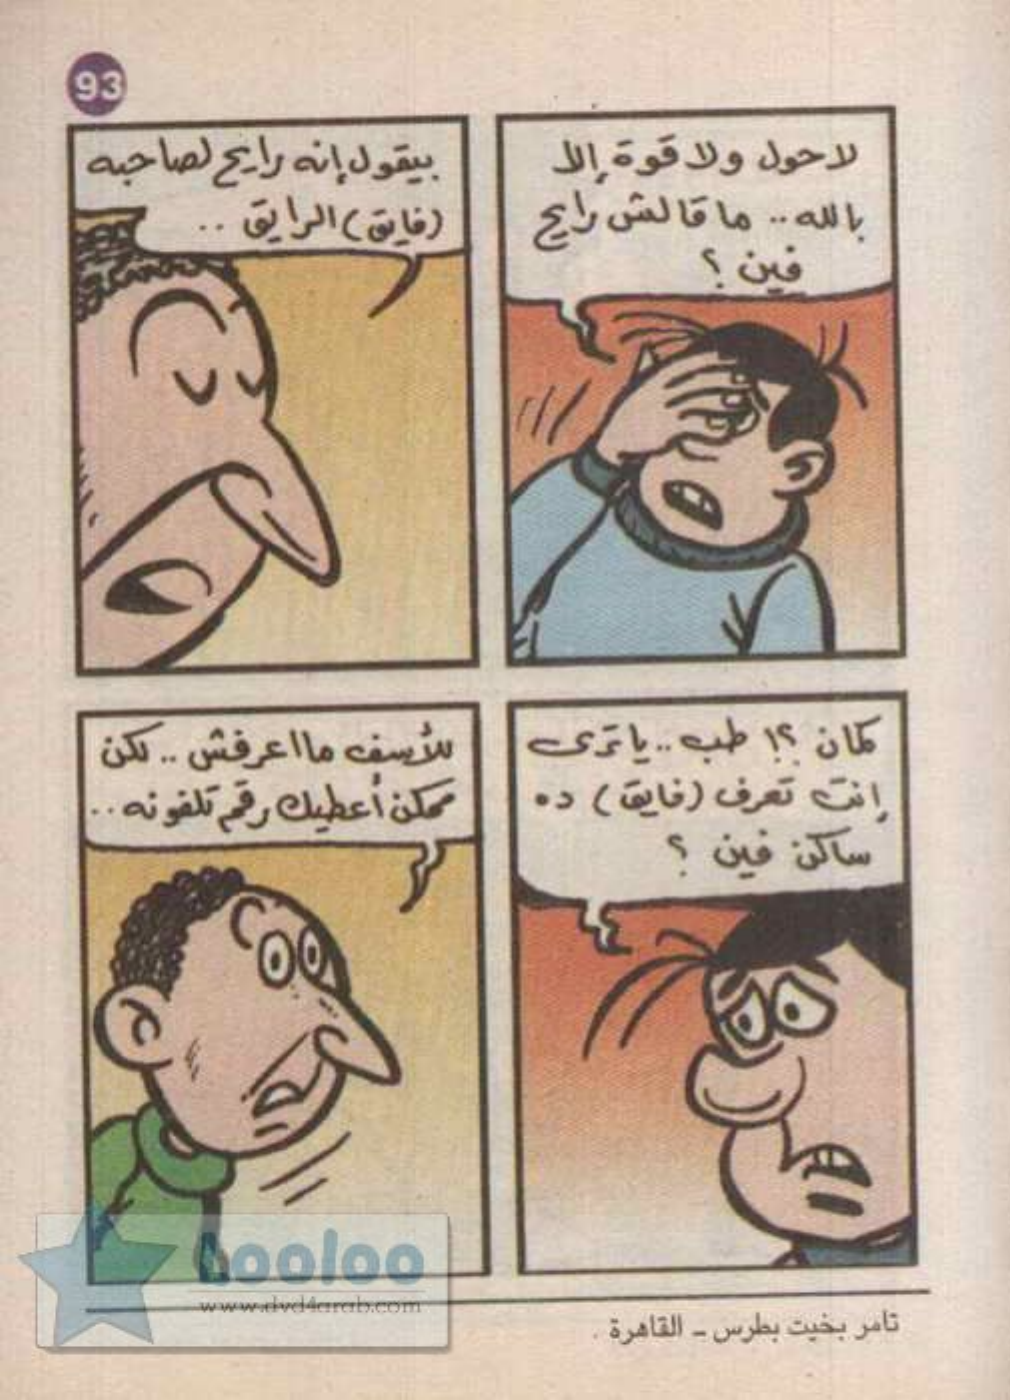 93
لا حول ولا قوة إلا
بالله.. ما قالش رايح
فين ؟
بيقول إنه رايح لصاحبه
(فايق) الرايق ..
كمان ؟! طب.. يا ترى
إنت تعرف (فايق) ده
ساكن فين ؟
للأسف ما اعرفش .. لكن
ممكن أعطيك رقم تلفونه..
Looloo
www.dvd4arab.com
تامر بخيت بطرس - القاهرة .